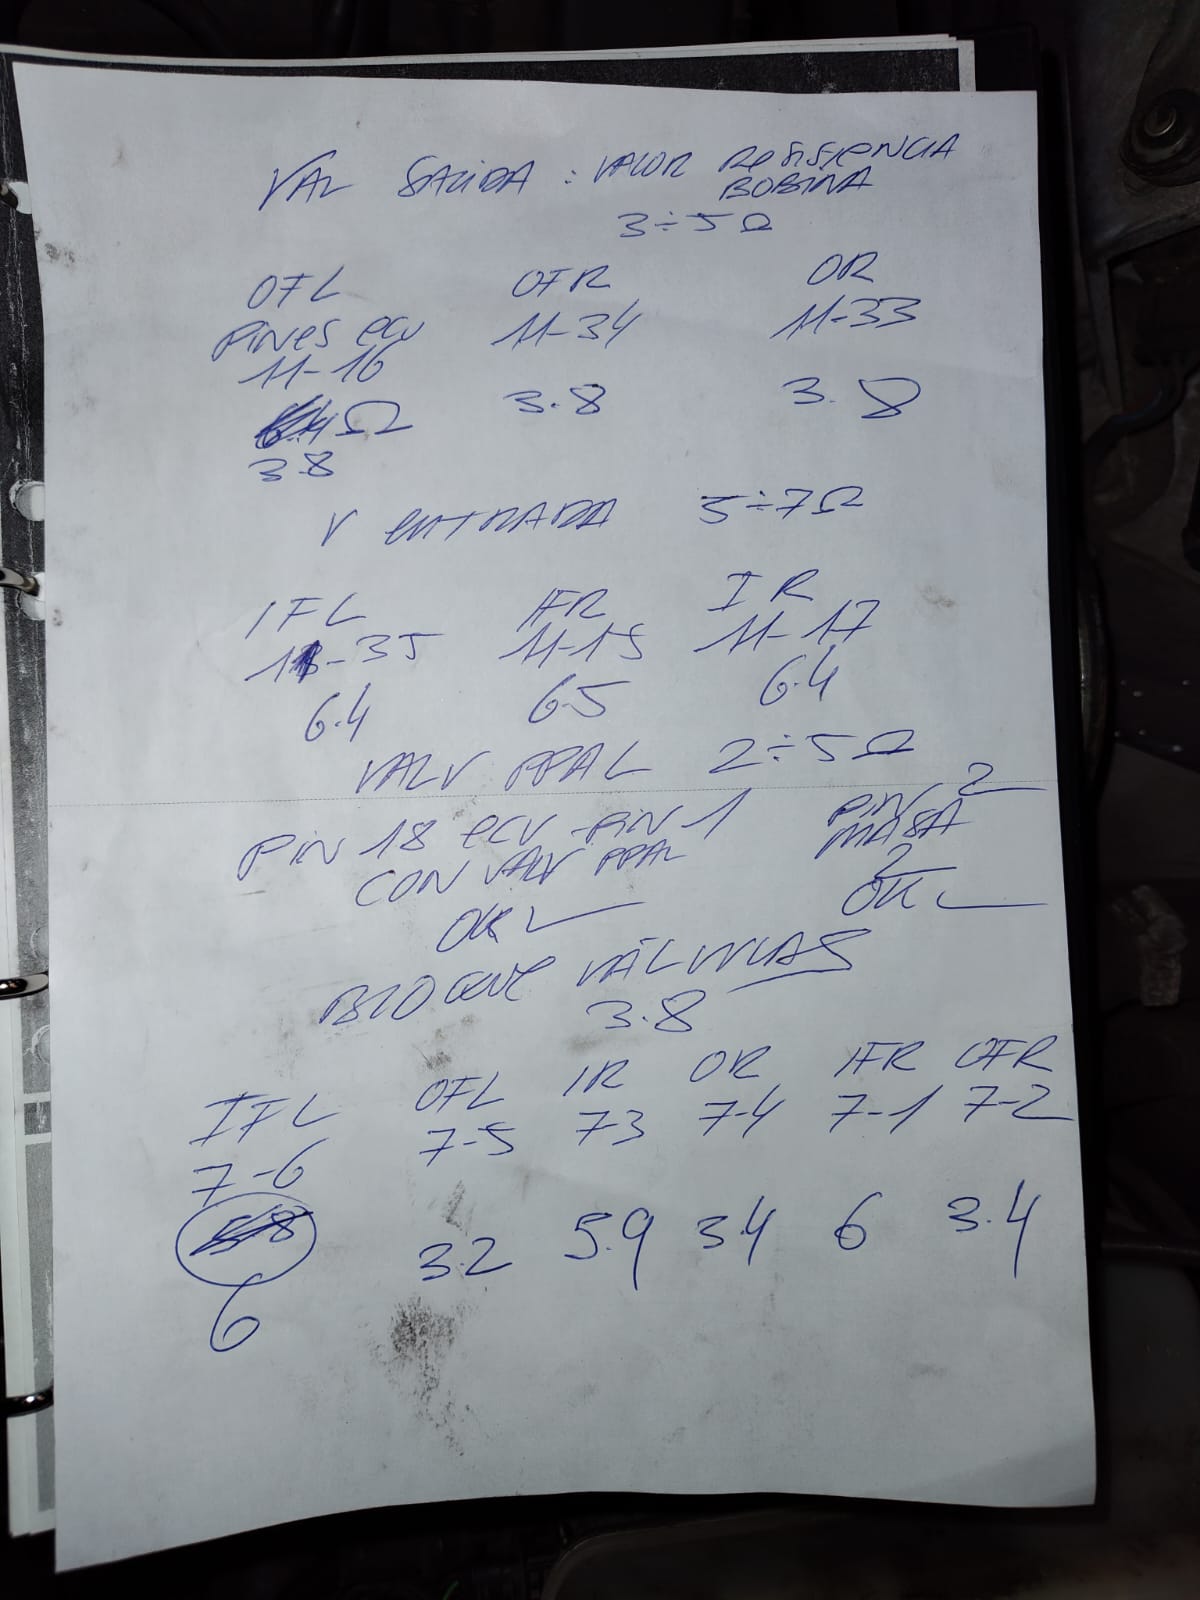 VAL SALIDA : VALOR RESISTENCIA
BOBINA
3÷5Ω
OFL OFR OR
PINES ECU 11-34 11-33
11-16
Ω 3.8 3.8
3.8
V ENTRADA 5÷7Ω
IFL IFR IR
11-35 11-15 11-17
6.4 6.5 6.4
VALV PPAL 2÷5Ω
PIN 18 ECU - PIN 1 PIN 2
CON VALV PPAL MASA
2
OK OK
BLOQUE VÁLVULAS
3.8
IFL OFL IR OR IFR OFR
7-6 7-5 73 7-4 7-1 7-2
3.2 5.9 3.4 6 3.4
6